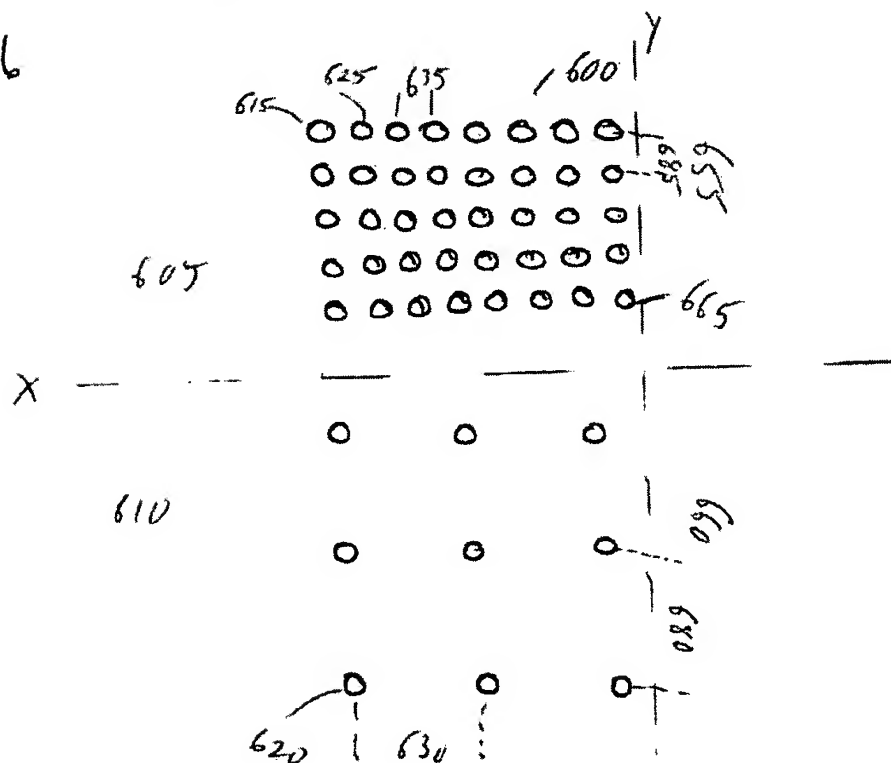 6
Y
600
625
635
615
685
655
605
665
X
610
660
680
620
630